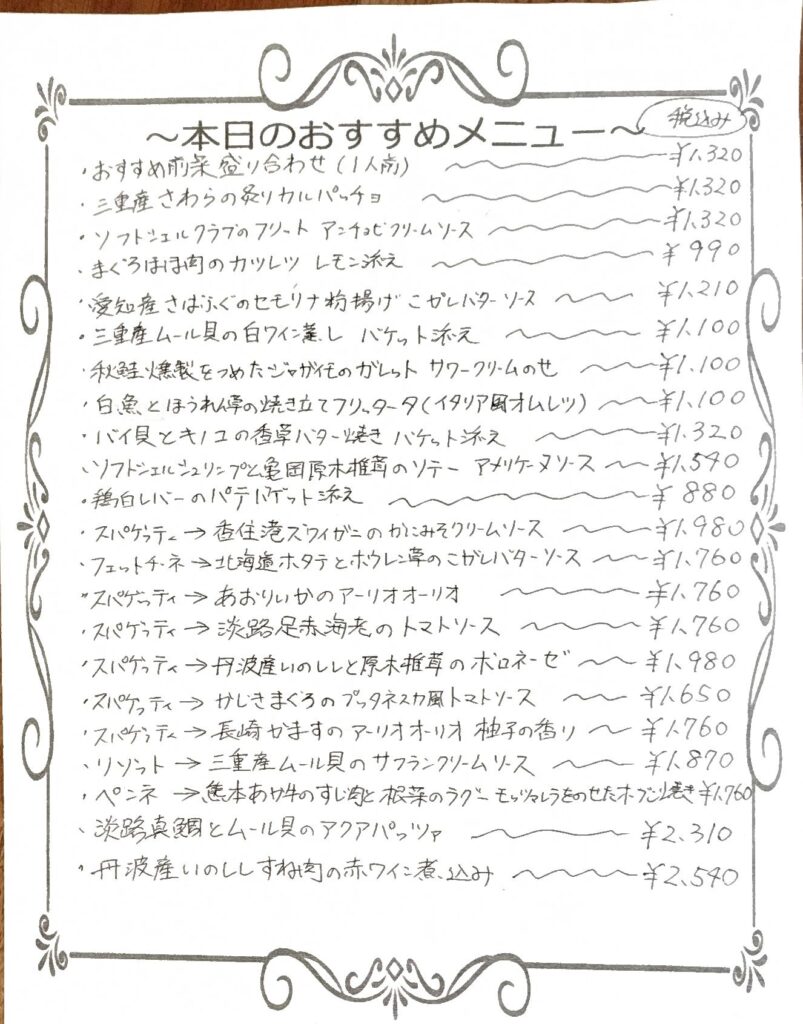 ～本日のおすすめメニュー～ 税込み
・おすすめ前菜盛り合わせ(1人前) ¥1,320
・三重産さわらの炙りカルパッチョ ¥1,320
・ソフトシェルクラブのフリット アンチョビクリームソース ¥1,320
・まぐろほほ肉のカツレツ レモン添え ¥990
・愛知産さばふぐのセモリナ粉揚げ こがしバターソース ¥1,210
・三重産ムール貝の白ワイン蒸し バケット添え ¥1,100
・秋鮭燻製をつめたジャガイモのガレット サワークリームのせ ¥1,100
・白魚とほうれん草の焼き立てフリッタータ(イタリア風オムレツ) ¥1,100
・バイ貝とキノコの香草バター焼き バケット添え ¥1,320
・ソフトシェルシュリンプと亀岡原木椎茸のソテー アメリケーヌソース ¥1,540
・鶏白レバーのパテ バゲット添え ¥880
・スパゲッティ→香住港ズワイガニのかにみそクリームソース ¥1,980
・フェットチーネ→北海道ホタテとホウレン草のこがしバターソース ¥1,760
・スパゲッティ→あおりいかのアーリオオーリオ ¥1,760
・スパゲッティ→淡路足赤海老のトマトソース ¥1,760
・スパゲッティ→丹波産いのししと原木椎茸のボロネーゼ ¥1,980
・スパゲッティ→かじきまぐろのプッタネスカ風トマトソース ¥1,650
・スパゲッティ→長崎かますのアーリオオーリオ 柚子の香り ¥1,760
・リゾット→三重産ムール貝のサフランクリームソース ¥1,870
・ペンネ→熊本あか牛のすじ肉と根菜のラグー モッツァレラをのせたオーブン焼き ¥1,760
・淡路真鯛とムール貝のアクアパッツァ ¥2,310
・丹波産いのししすね肉の赤ワイン煮込み ¥2,540